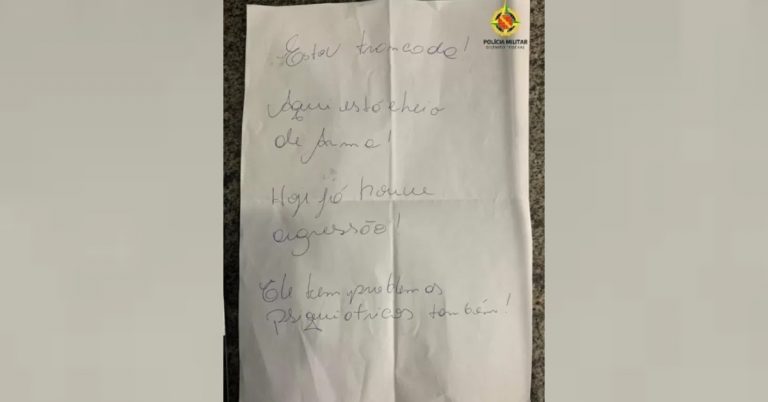 POLÍCIA MILITAR
DISTRITO FEDERAL
Estou trancada!
Aqui está cheio
de arma!
Hoje já houve
agressão!
Ele tem problemas
psiquiatricos também!